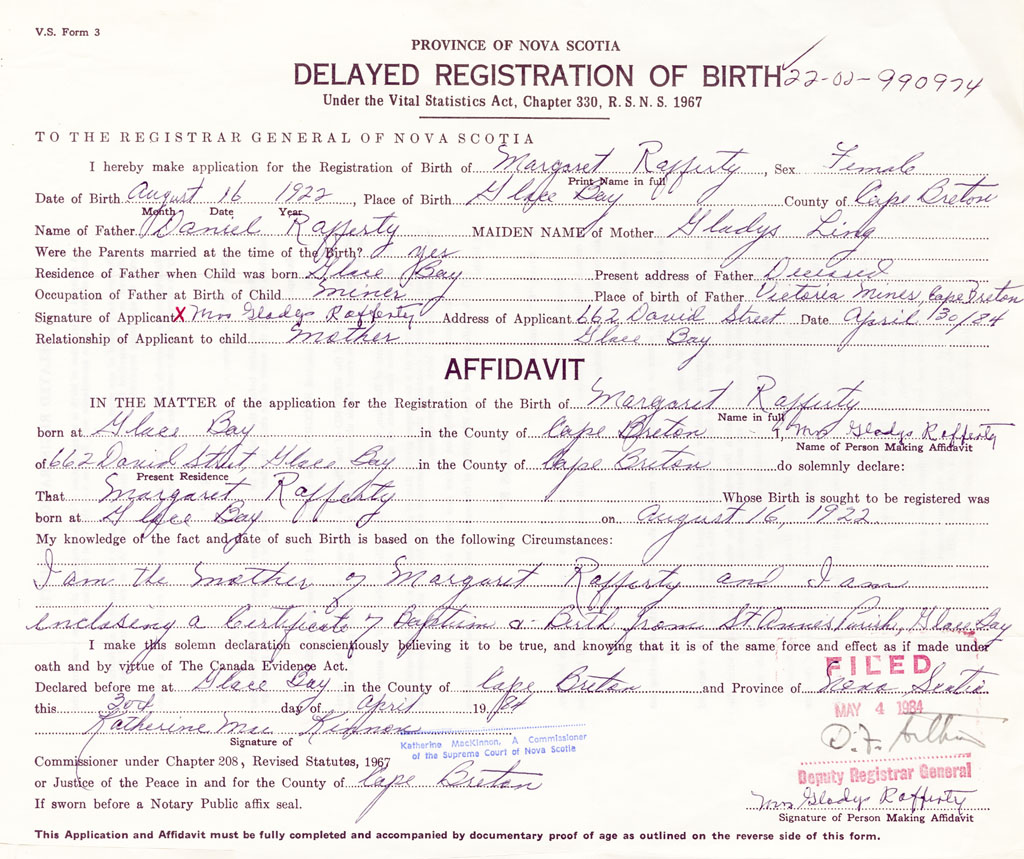 V.S. Form 3
PROVINCE OF NOVA SCOTIA
DELAYED REGISTRATION OF BIRTH 22-02-990974
Under the Vital Statistics Act, Chapter 330, R. S. N. S. 1967
TO THE REGISTRAR GENERAL OF NOVA SCOTIA
I hereby make application for the Registration of Birth of Margaret Rafferty, Sex Female
Print Name in full
Date of Birth August 16 1922, Place of Birth Glace Bay County of Cape Breton
Month Date Year
Name of Father Daniel Rafferty MAIDEN NAME of Mother Gladys Ling
Were the Parents married at the time of the Birth? yes
Residence of Father when Child was born Glace Bay Present address of Father Deceased
Occupation of Father at Birth of Child miner Place of birth of Father Victoria Mines, Cape Breton
Signature of Applicant X Mrs Gladys Rafferty Address of Applicant 662 David Street Date April 30/84
Relationship of Applicant to child Mother Glace Bay
AFFIDAVIT
IN THE MATTER of the application for the Registration of the Birth of Margaret Rafferty
Name in full
born at Glace Bay in the County of Cape Breton I, Mrs Gladys Rafferty
Name of Person Making Affidavit
of 662 David Street, Glace Bay in the County of Cape Breton do solemnly declare:
Present Residence
That Margaret Rafferty Whose Birth is sought to be registered was
born at Glace Bay on August 16, 1922.
My knowledge of the fact and date of such Birth is based on the following Circumstances:
I am the mother of Margaret Rafferty and I am
enclosing a Certificate of Baptism & Birth from St. Annes Parish, Glace Bay
I make this solemn declaration conscientiously believing it to be true, and knowing that it is of the same force and effect as if made under
oath and by virtue of The Canada Evidence Act.
FILED
Declared before me at Glace Bay in the County of Cape Breton and Province of Nova Scotia
this 30th day of April 19 84
MAY 4 1984
Katherine Mac Kinnon
Signature of
Katherine MacKinnon, A Commissioner
of the Supreme Court of Nova Scotia
Commissioner under Chapter 208, Revised Statutes, 1967
Deputy Registrar General
or Justice of the Peace in and for the County of Cape Breton
If sworn before a Notary Public affix seal.
Mrs Gladys Rafferty
Signature of Person Making Affidavit
This Application and Affidavit must be fully completed and accompanied by documentary proof of age as outlined on the reverse side of this form.